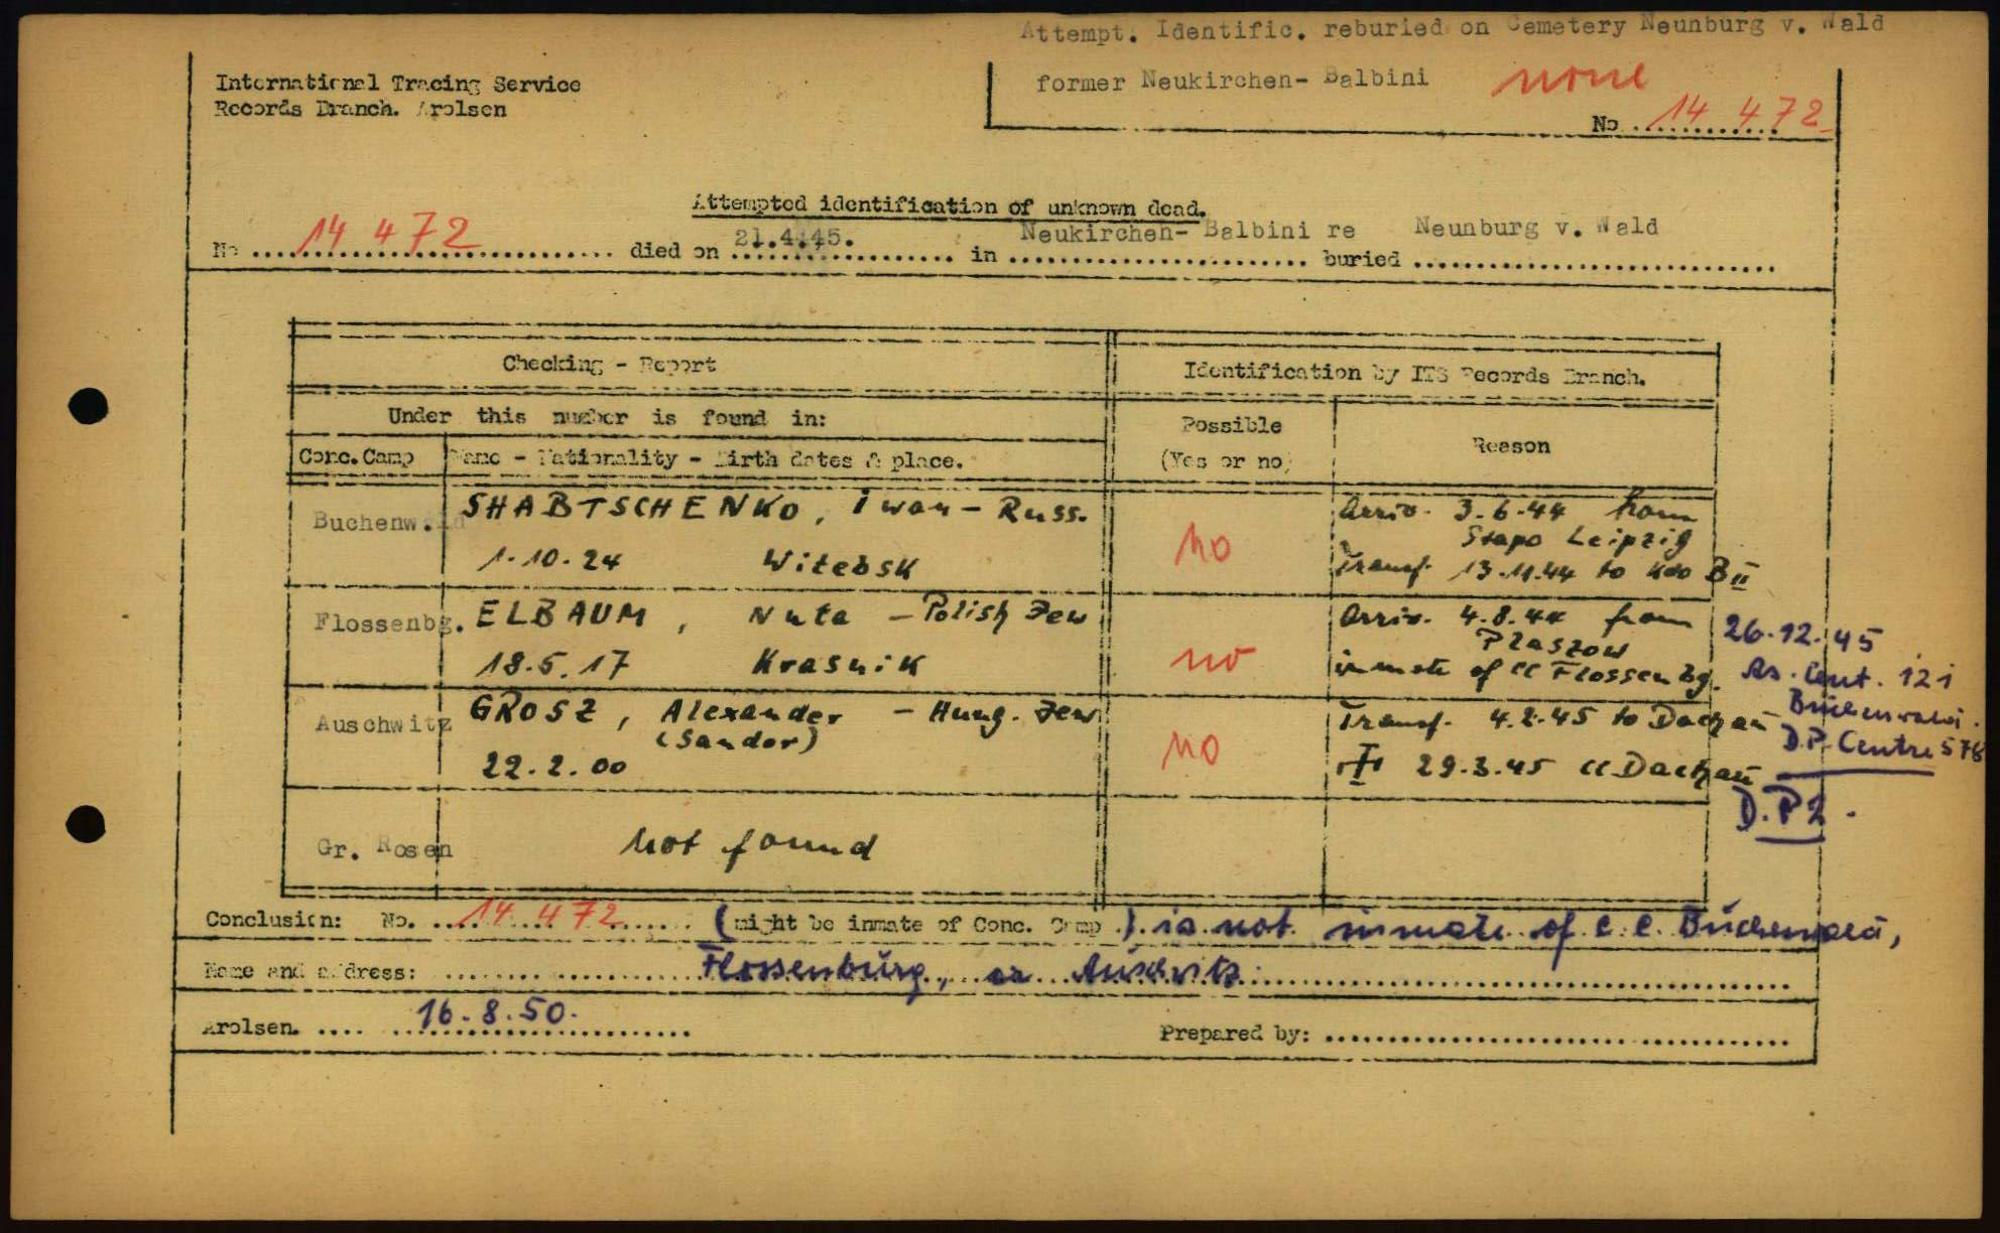 Attempt. Identific. reburied on Cemetery Neunburg v. Wald
International Tracing Service
Records Branch. Arolsen
former Neukirchen- Balbini none
No 14 472
Attempted identification of unknown dead.
No 14 472 died on 21.4.45. in Neukirchen- Balbini re buried Neunburg v. Wald
Checking - Report
Identification by ITS Records Branch.
Under this number is found in:
Possible
(Yes or no)
Reason
Conc. Camp Name - Nationality - Birth dates & place.
Buchenwald SHABTSCHENKO, Iwan - Russ.
1.10.24 Witebsk
no
Arriv. 3.6.44 from
Stapo Leipzig
Transf. 13.11.44 to Kdo B II
Flossenbg. ELBAUM, Nuta - Polish Jew
18.5.17 Krasnik
no
Arriv. 4.8.44 from
Plaszow
inmate of CC Flossenbg.
26.12.45
As. Cent. 121
Buchenwald.
D.P. Centre 578
D.P2.
Auschwitz GROSZ, Alexander - Hung. Jew
(Sandor)
22.2.00
no
Transf. 4.2.45 to Dachau
29.3.45 CC Dachau
Gr. Rosen not found
Conclusion: No. 14 472 (might be inmate of Conc. Camp) is not inmate of C.C. Buchenwald,
Name and address: Flossenburg, or Auschwitz
Arolsen. 16.8.50. Prepared by: